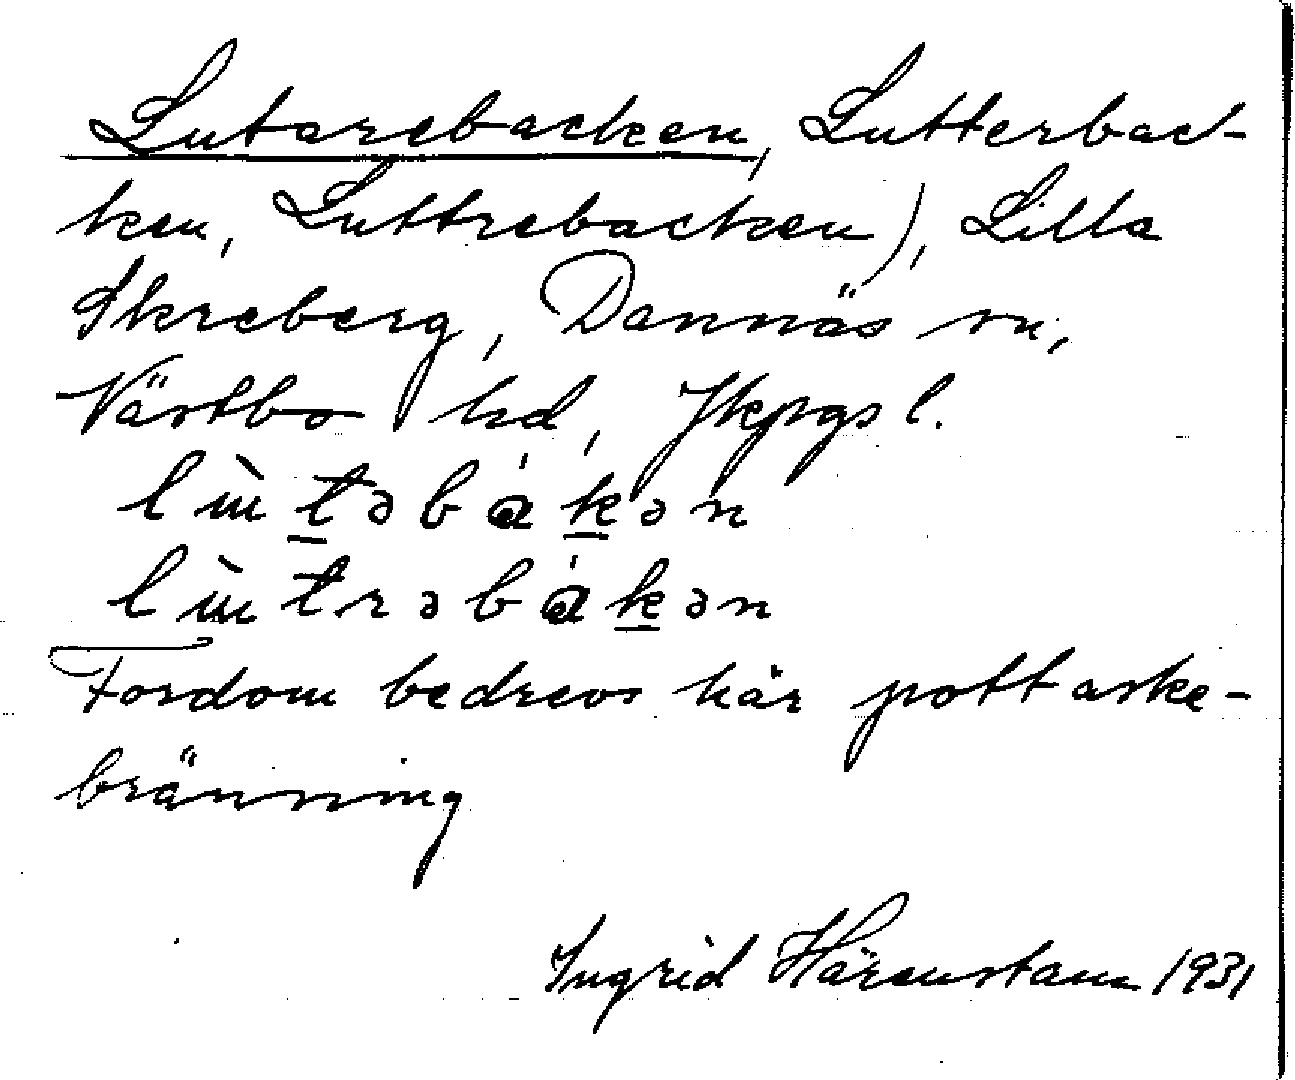 Lutarebacken, Lutterbac-
ken, Luttrebacken), Lilla
Skreberg, Dannäs sn,
Västbo hd, Jkpgs l.
lùtəbákən
lùtrəbákən
Fordom bedrevs här pottaske-
bränning
Ingrid Härenstam 1931